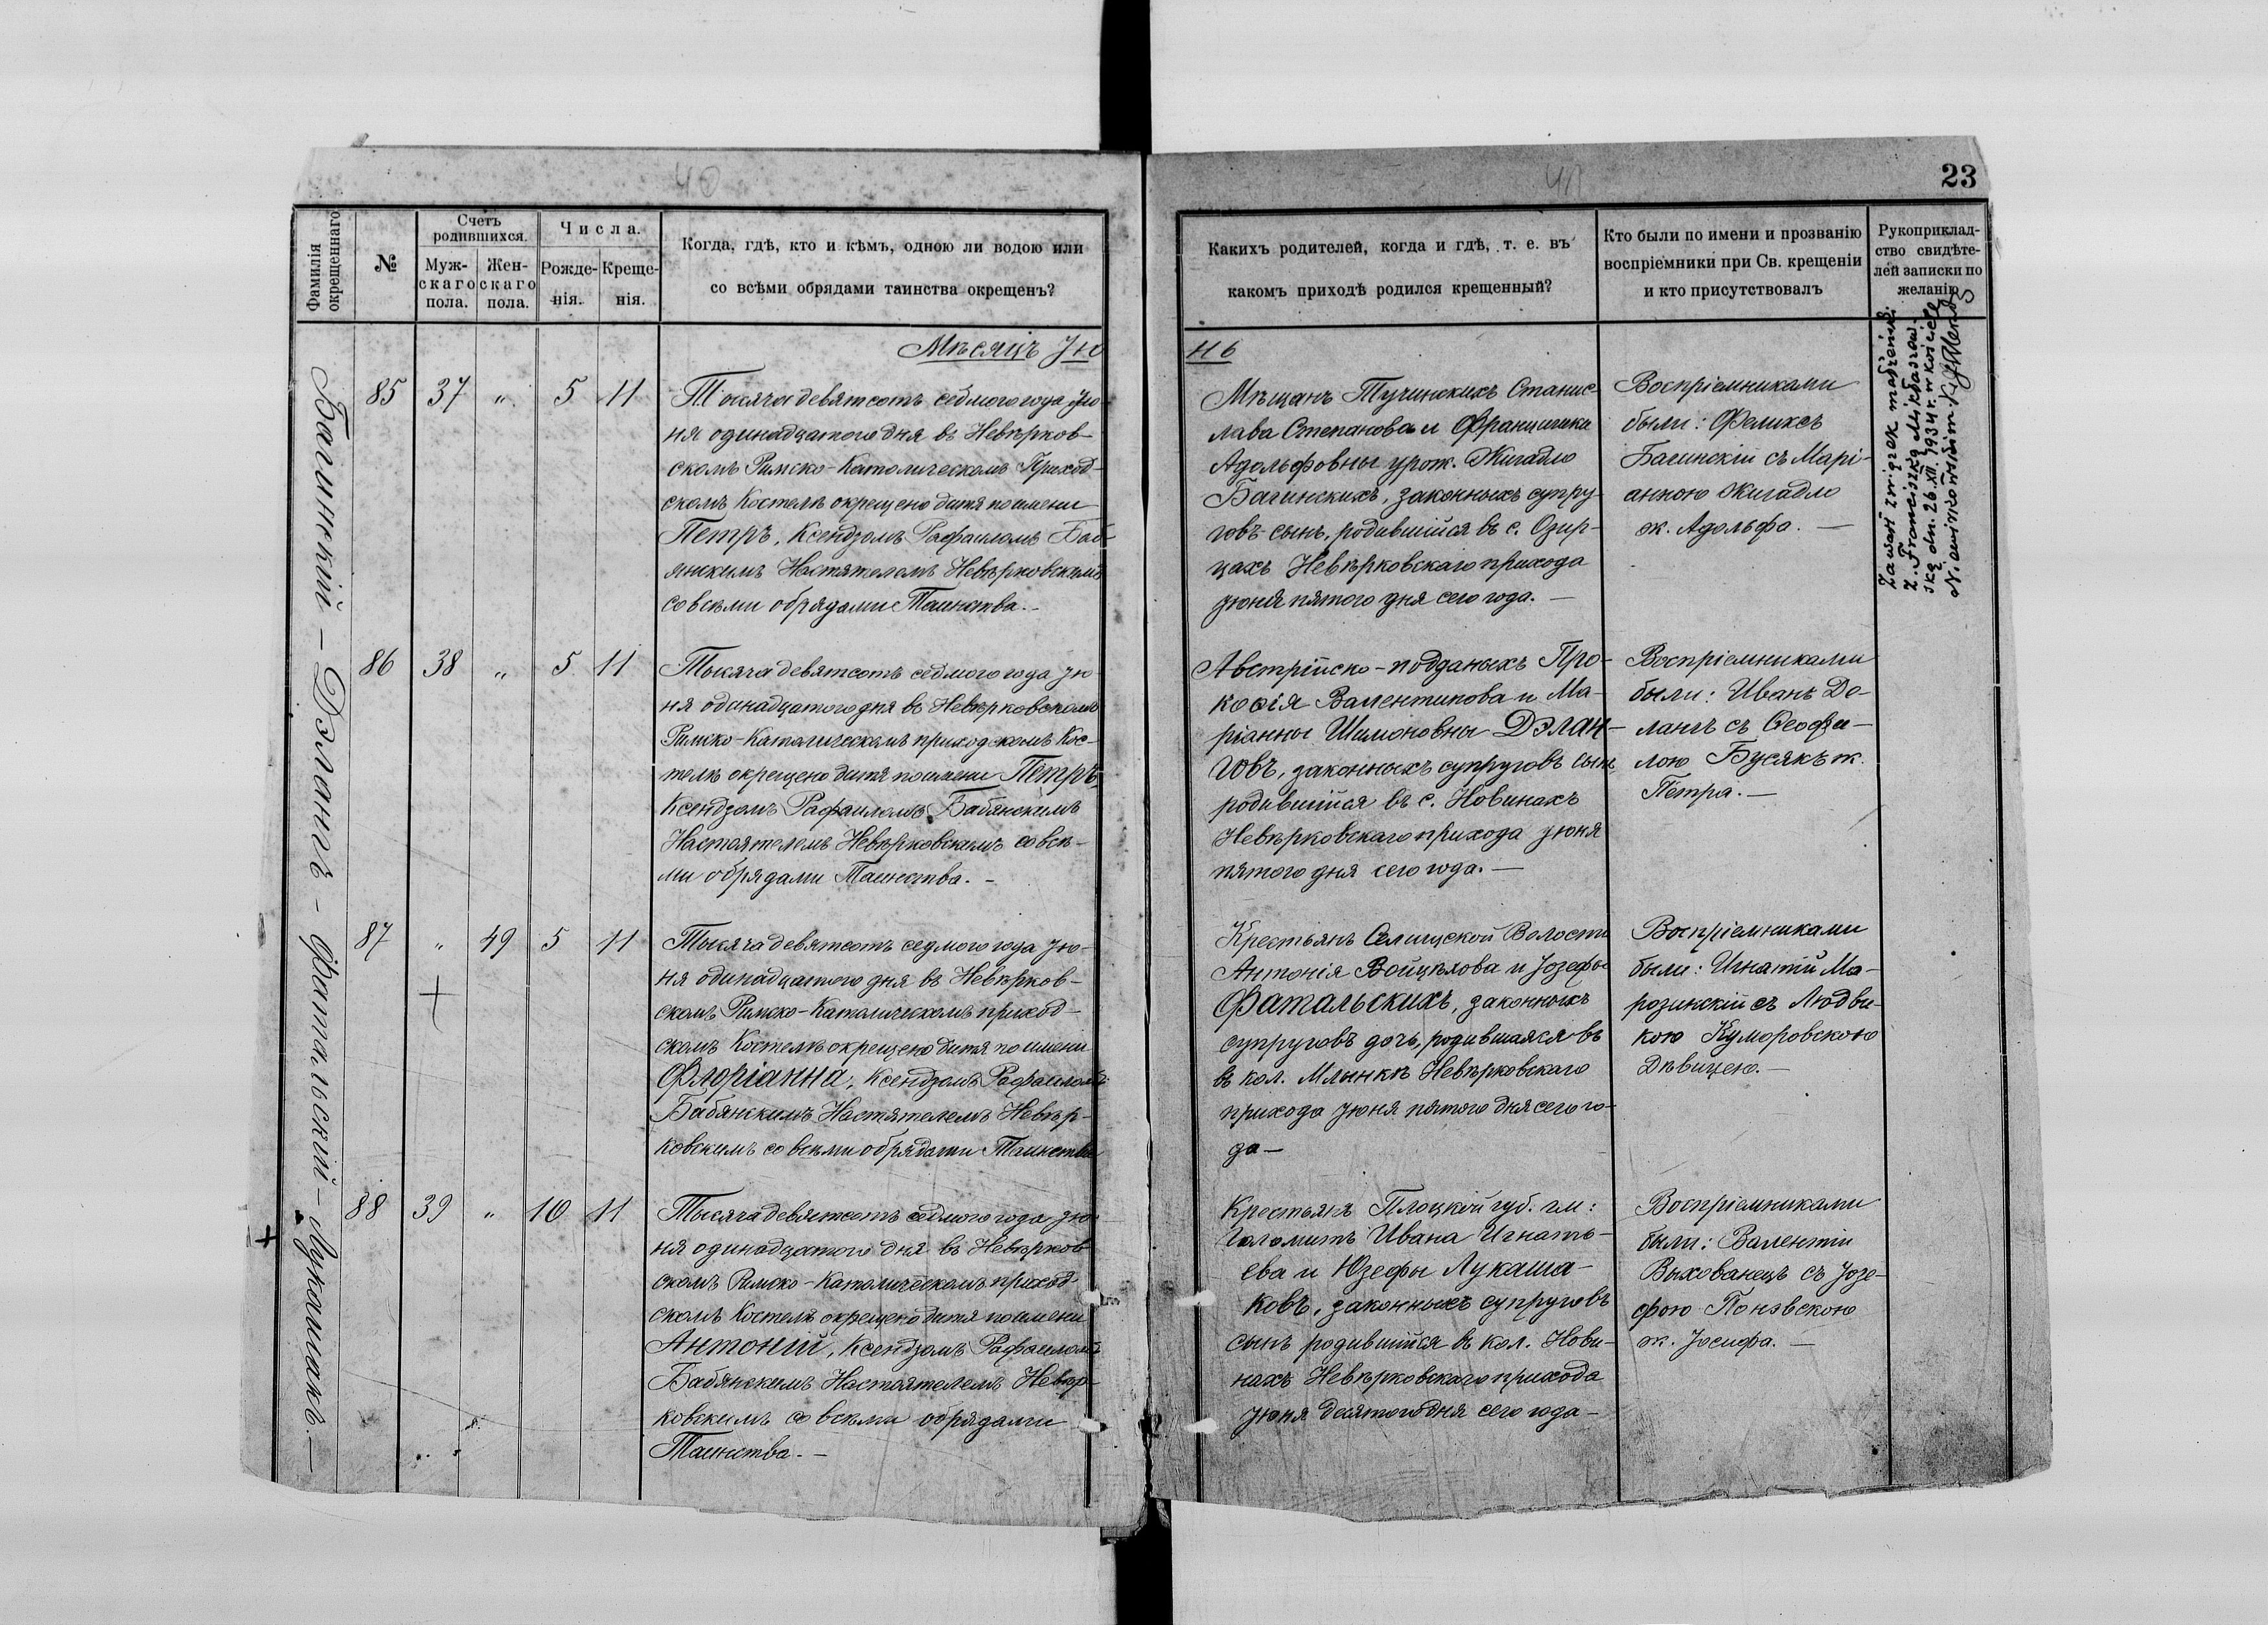 40
41
23
Фамилія
окрещеннаго
№
Счетъ
родившихся.
Муж-
скаго
пола.
Жен-
скаго
пола.
Числа.
Рожде-
нія.
Креще-
нія.
Когда, гдѣ, кто и кѣмъ, одною ли водою или
со всѣми обрядами таинства окрещенъ?
Какихъ родителей, когда и гдѣ, т. е. въ
какомъ приходѣ родился крещенный?
Кто были по имени и прозванію
воспріемники при Св. крещеніи
и кто присутствовалъ
Рукоприклад-
ство свидѣте-
лей записки по
желанію
Мѣсяцъ Іюнь
Багинскій – Дэлангъ – Фатальскій – Лукашакъ. –
85 37 „ 5 11
Тысяча девятсотъ седмого года Ію-
ня одинадцатого дня въ Невѣрков-
скомъ Римско-Католическомъ Приход-
скомъ Костелѣ окрещено дитя по имени
Петръ, Ксендзомъ Рафаиломъ Баб-
янскимъ Настятелемъ Невѣрковскимъ
со всѣми обрядами Таинства. –
Мѣщанъ Тучинскихъ Станис-
лава Степанова и Францишки
Адольфовны урож. Жигадло
Багинскихъ, законныхъ супру-
говъ сынъ, родившійся въ с. Озир-
цахъ Невѣрковскаго прихода
Іюня пятого дня сего года. –
Воспріемниками
были: Феликсъ
Багинскій съ Марі-
анною Жигадло
ж. Адольфа. –
Zawarł związek małżeński
z Franciszką
ską dn. 26.XII.1934 r. w kościele
86 38 „ 5 11
Тысяча девятсотъ седмого года Ію-
ня одинадцатого дня въ Невѣрковскомъ
Римско-Католическомъ приходскомъ Кос-
телѣ окрещено дитя по имени Петръ,
Ксендзомъ Рафаиломъ Бабянскимъ
Настоятелемъ Невѣрковскимъ со всѣ-
ми обрядами Таинства. –
Австрійско-подданыхъ Про-
кофія Валентинова и Ма-
ріанны Шимоновны Дэлан-
говъ, законныхъ супруговъ сынъ,
родившійся въ с. Новинахъ
Невѣрковскаго прихода Іюня
пятого дня сего года. –
Воспріемниками
были: Иванъ Де-
лангъ съ Ѳеофи-
лою Бусякъ ж.
Петра. –
87 „ 49 5 11
Тысяча девятсотъ седмого года Ію-
ня одинадцатого дня въ Невѣрков-
скомъ Римско-Католическомъ приход-
скомъ Костелѣ окрещено дитя по имени
Флоріанна, Ксендзомъ Рафаиломъ
Бабянскимъ Настятелемъ Невѣр-
ковскимъ со всѣми обрядами Таинства
Крестьянъ Селищской Волости
Антонія Войцѣхова и Іозефы
Фатальскихъ, законныхъ
супруговъ дочь, родившаяся въ
въ кол. Млынкѣ Невѣрковскаго
прихода Іюня пятого дня сего го-
да –
Воспріемниками
были: Игнатій Ма-
розинскій съ Людви-
кою Куморовскою
Дѣвицею. –
88 39 „ 10 11
Тысяча девятсотъ седмого года Ію-
ня одинадцатого дня въ Невѣрков-
скомъ Римско-Католическомъ приход-
скомъ Костелѣ окрещено дитя по имени
Антоній, Ксендзомъ Рафаиломъ
Бабянскимъ Настоятелемъ Невѣр-
ковскимъ со всѣми обрядами
Таинства. –
Крестьянъ Плоцкой губ. гм:
Ивана Игнать-
ева и Юзефы Лукаша-
ковъ, законныхъ супруговъ
сынъ родившійся въ кол. Нови-
нахъ Невѣрковскаго прихода
Іюня десятого дня сего года –
Воспріемниками
были: Валентій
Выхованецъ съ Іозе-
фою Понэвскою
ж. Іосифа. –